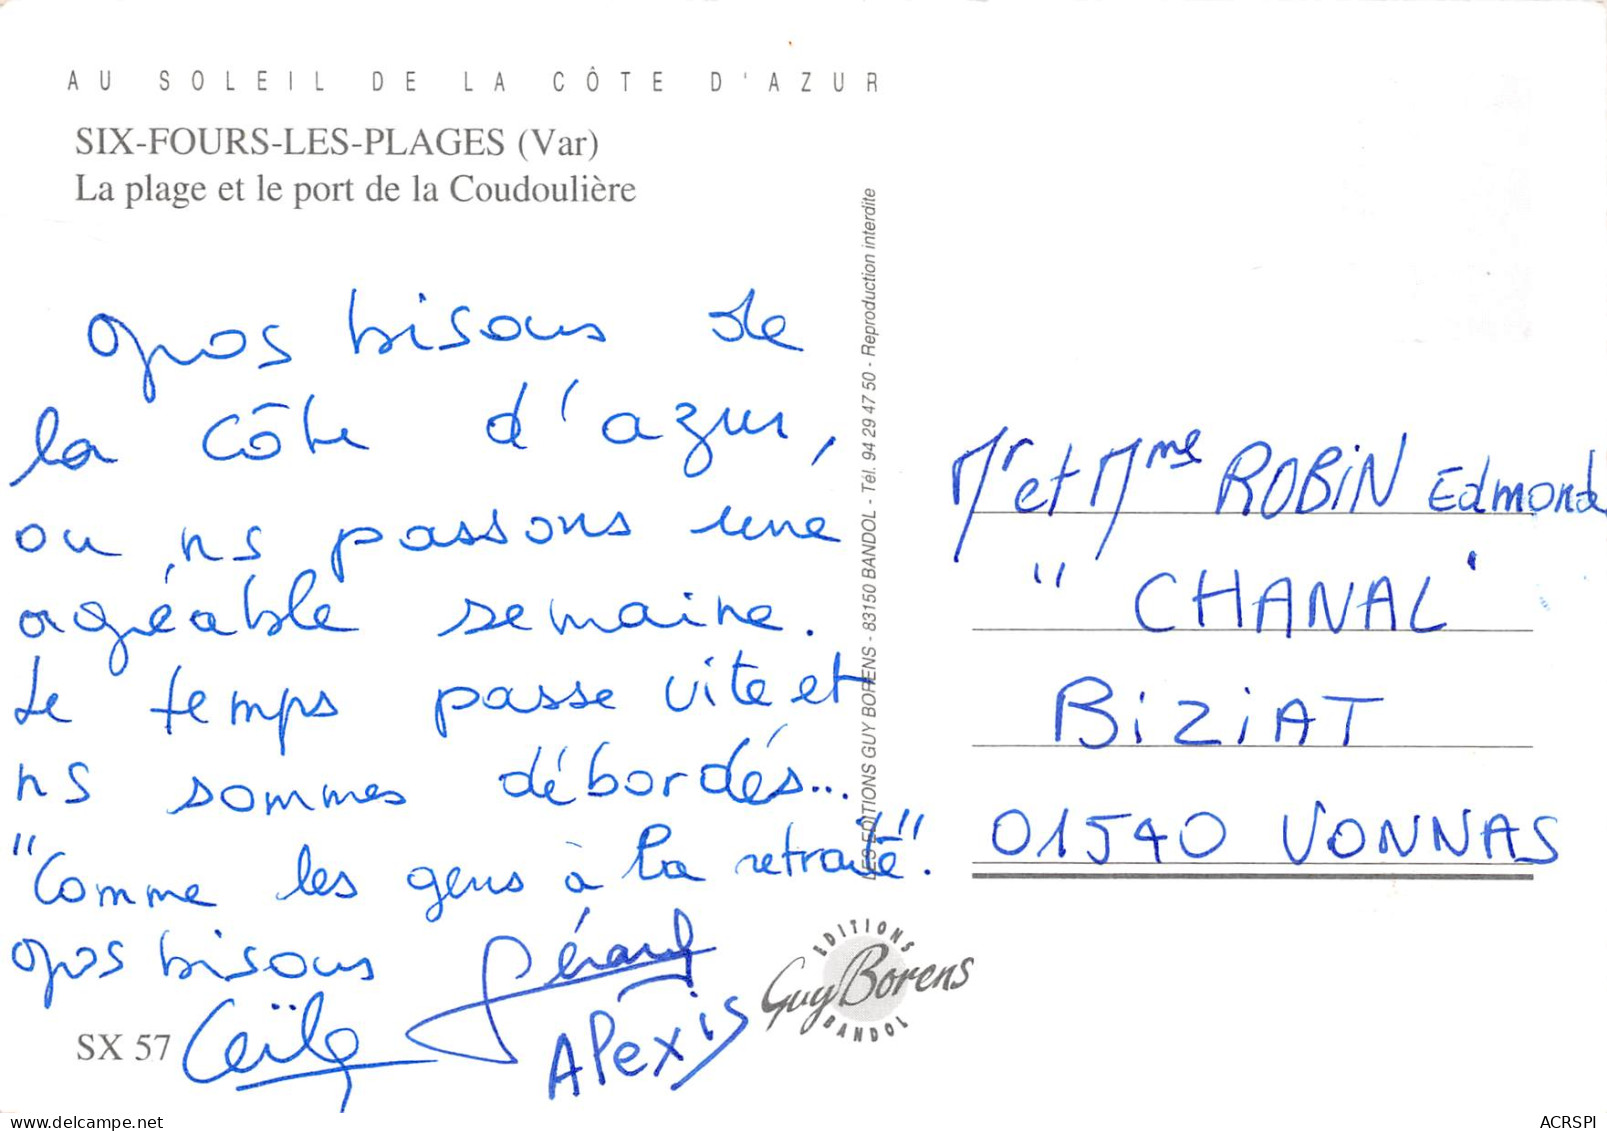 AU SOLEIL DE LA CÔTE D'AZUR
SIX-FOURS-LES-PLAGES (Var)
La plage et le port de la Coudoulière
gros bisous de
la côte d'azur,
ou ns passons une
agréable semaine.
Le temps passe vite et
ns sommes débordés...
"Comme les gens à la retraité".
gros bisous Gérard
Cécile
Alexis
SX 57
LES EDITIONS GUY BORENS - 83150 BANDOL - Tél. 94 29 47 50 - Reproduction interdite
EDITIONS
Guy Borens
BANDOL
Mr et Mme ROBIN Edmond
"CHANAL'
BIZIAT
01540 VONNAS
delcampe.net
ACRSPI